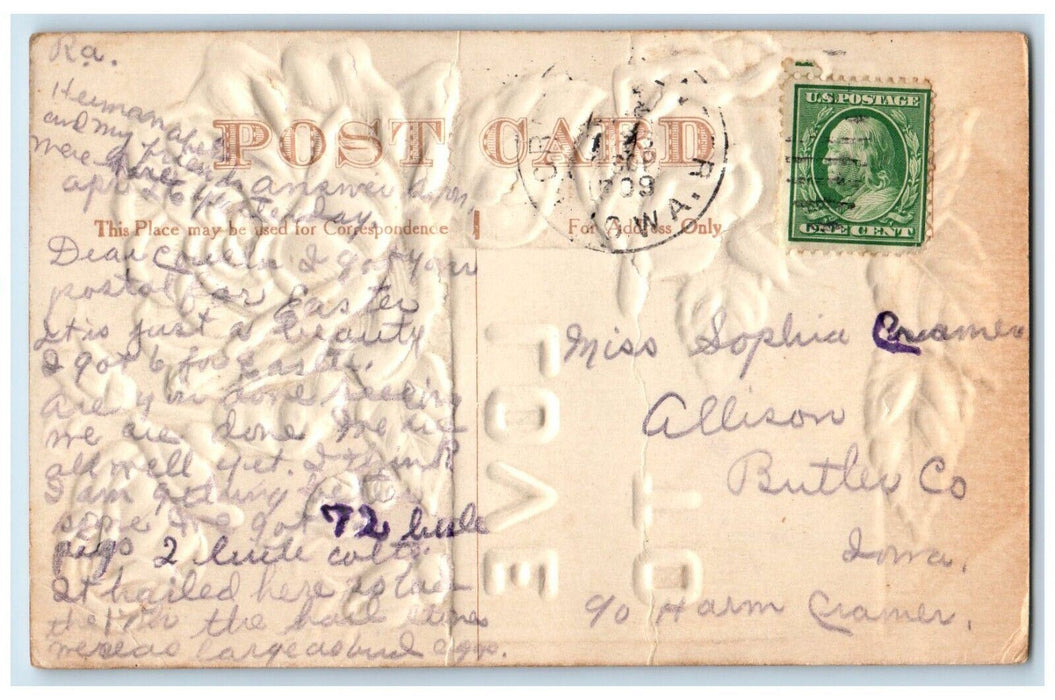 Ra.
Hermanabel
and my friend
were here answer soon
apr 26 yesterday
POST CARD
This Place may be used for Correspondence
For Address Only
U.S. POSTAGE
ONE CENT
09
IOWA
R.
Dear Cousin I got your
postal for Easter
it is just a beauty
I got 6 for Easter.
are you done seeding
we are done We are
all well yet. I think
I am getting better
some We got 72 little
pigs 2 little colts.
It hailed here
the 17th the hail stones
were as large as bird eggs.
Miss Sophia Cramer
Allison
Butler Co
Iowa.
c/o Harm Cramer.
LOVE
TO